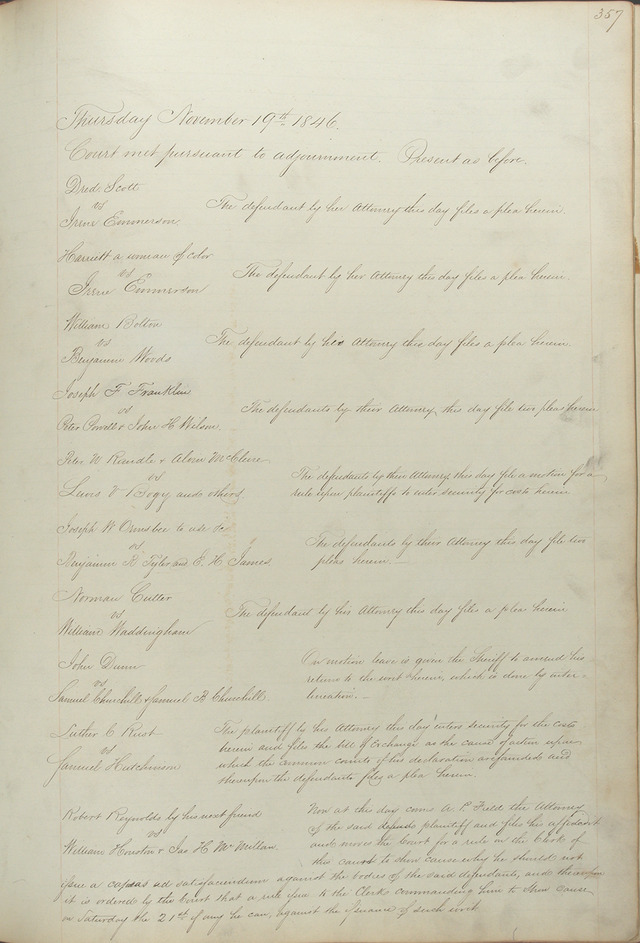 357
Thursday November 19th 1846.
Court met pursuant to adjournment. Present as before.
Dred. Scott
vs
Irene Emmerson.
The defendant by her Attorney this day files a plea herein.
Harriett a woman of color
vs
Irene Emmerson
The defendant by her Attorney this day files a plea herein.
William Bolton
vs
Benjamin Woods
The defendant by her Attorney this day files a plea herein.
Joseph F Franklin
vs
Peter Powell & John H Wilson.
The defendants by their Attorney this day file two pleas herein
Peter W Randle & McClure
vs
Lewis V Bogy and others
The defendants by their Attorney this day file a motion for a
rule upon plaintiffs to enter security for costs herein
Joseph W Ormsbee to use &c
vs
Benjamin R Tyler and E. H. James
The defendants by their Attorney this day file two
pleas herein. —
Norman Cutter
vs
William Waddingham
The defendant by his Attorney this day files a plea herein
John Dunn
vs
Samuel Churchill & Samuel B Churchill.
On motion leave is given the Sheriff to amend his
return to the writ herein, which is done by inter-
lineation. —
Luther C Rust
vs
Samuel Hutchinson
The plaintiff by his Attorney this day enters security for the costs
herein and files the bill of Exchange as the cause of action upon
which the common counts of his declaration are founded and
thereupon the defendants files a plea herein.
Robert Reynolds by his next friend
vs
William Houston & Jas H McMillan.
Now at this day comes A. P. Field the Attorney
of the said plaintiff and files his affidavit
and moves the Court for a rule on the Clerk of
this court to show cause why he should not
issue a capias ad satisfaciendum against the bodies of the said defendants, and thereupon
it is ordered by the Court that a rule issue to the Clerk commanding him to show cause
on Saturday the 21st if any he can, against the issuance of such writ.